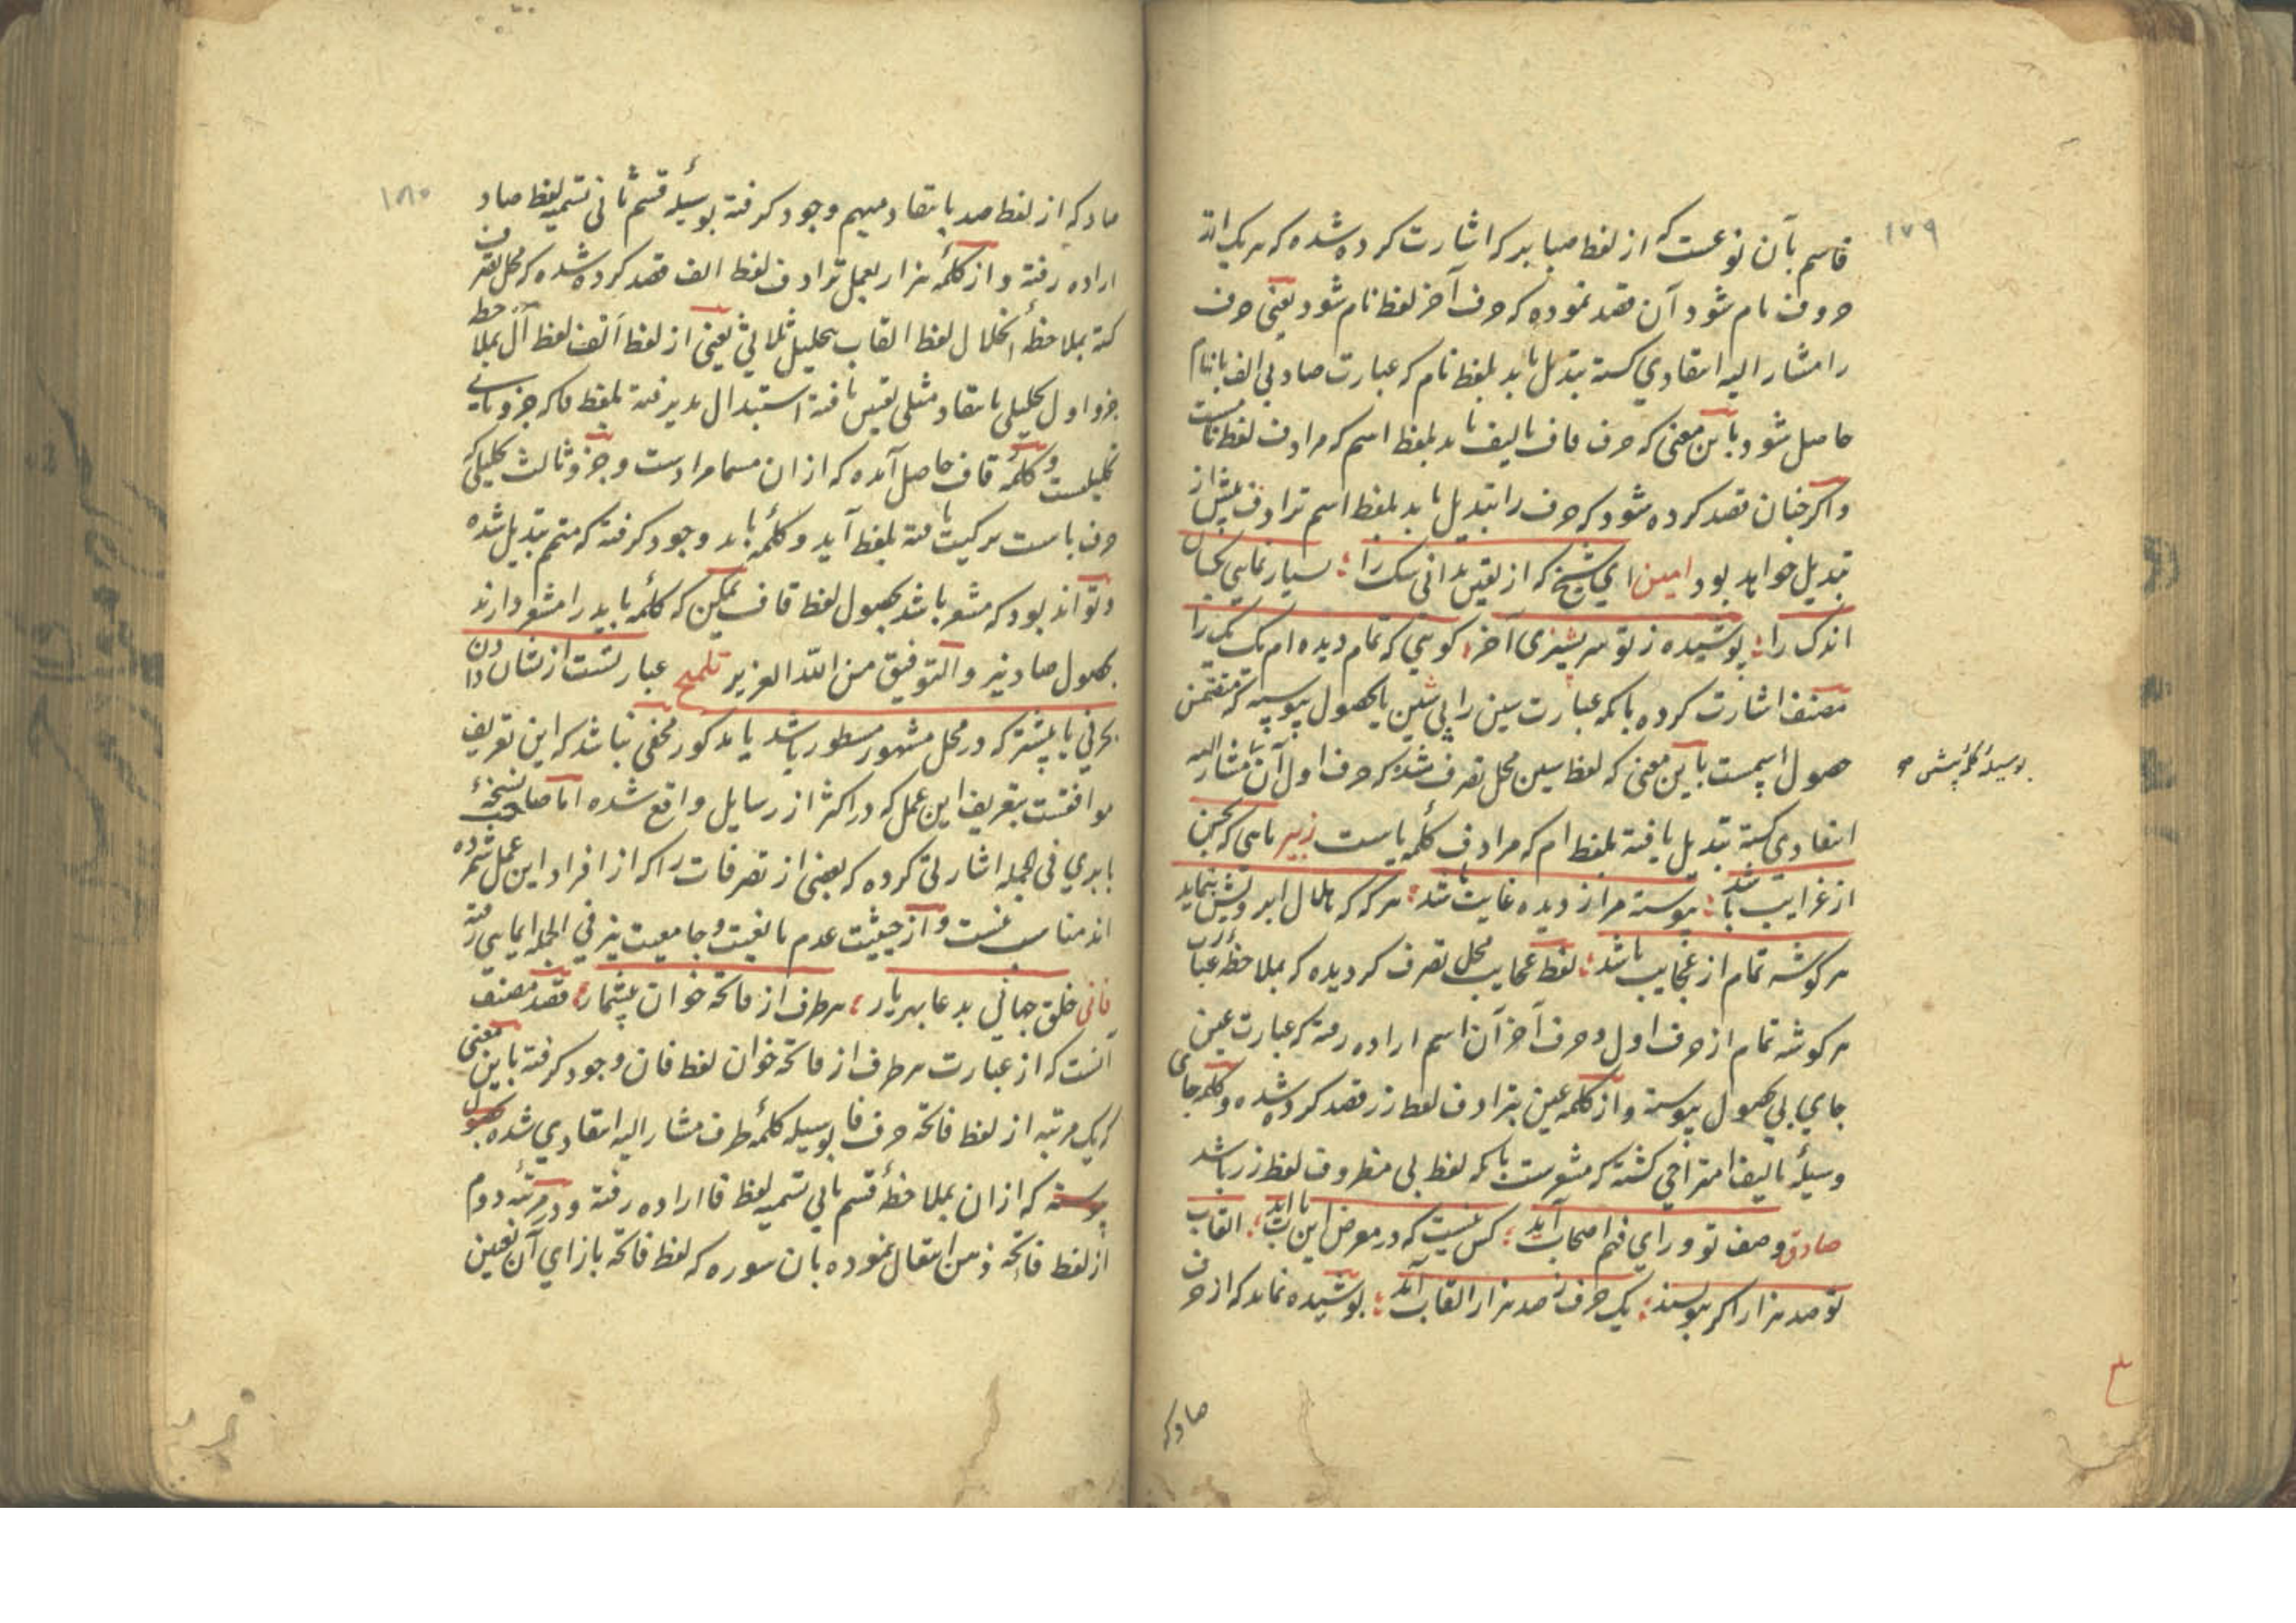 ۱۷۹
قاسم بآن نوعست که از لفظ صبا بدرکه اشارت کرده شده که هر یک از ته
حروف نام شود آن قصد نموده که حرف آخر لفظ نام شود یعنی حرف
را مشار الیه انتقادی کسته تبدیل یابد بلفظ نام که عبارت صاد بی الف با نام
حاصل شود باین معنی که حرف قاف تالیف یابد بلفظ اسم که مرادف لفظ نامست
واکر چنان قصد کرده شود که حرف را تبدیل یابد بلفظ اسم ترادف پیش از
تبدیل خواهد بود امین ای شیخ که از یقین بدانی شک را ؛ بسیار نمایی بکسان
اندک را ؛ پوشیده ز تو هر پشیزی آخر ؛ کویی که تمام دیده ام یک یک را
مصنف اشارت کرده بانکه عبارت سین را پی شین یا بحصول پیوسته که متضمن
حصول اسمست باین معنی که لفظ سین محل تصرف شده که حرف اول آن مشار الیه
بوسیلهٔ کلمهٔ پیش ص
انتقادی کسته تبدیل یافته بلفظ ام که مرادف کلمه یاست زبیر ماهی که بحسن
از غرایب باشد ؛ پیوسته مرا ز دیده غایب باشد ؛ هر که که هلال ابرویش بنماید
هر کوشه تمام از عجایب باشد ؛ لفظ عجایب محل تصرف کردیده که بملاحظهٔ عبارت
هر کوشه تمام از حرف اول و حرف آخر آن اسم اراده رفته که عبارت عین
جای بی بحصول پیوسته و از کلمه عین بترادف لفظ زر قصد کرده شده و کلمه جای
وسیلهٔ تالیف امتزاجی کشته که مشعرست بانکه لفظ بی مظروف لفظ زر باشد
صادق وصف تو ورای فهم اصحاب آید ؛ کس نیست که در معرض این باب آید ؛ القاب
تو صد هزار اکر بنویسند ؛ یک حرف ز صد هزار القاب آید ؛ پوشیده نماند که از حرف
صاد که
۱۸۰
صاد که از لفظ صد بانتقاد مبهم وجود کرفته بوسیلهٔ قسم ثانی تسمیه لفظ صاد
اراده رفته و از کلمهٔ هزار بعمل ترادف لفظ الف قصد کرده شده که محل تصرف
کشته بملاحظهٔ انحلال لفظ القاب بتحلیل ثلاثی یعنی از لفظ الف لفظ ال بملاحظ
جزو اول تحلیلی بانتقاد مثلی تعین یافته استبدال پذیرفته بلفظ قا که جزو ثانی
تحلیلست و کلمهٔ قاف حاصل آمده که از ان مسما مرادست و جزو ثالث تحلیلی که
حرف باست ترکیب یافته بلفظ آید و کلمهٔ باید وجود کرفته که متمم تبدیل شده
و تواند بود که مشعر باشد بحصول لفظ قاف لیکن که کلمهٔ باید را مشعر دارند
بحصول صاد نیز و التوفیق من الله العزیز تلمیح عبارتست از نشان دادن
بحرفی یا بیشتر که در محل مشهور مسطور باشد یا مذکور مخفی نباشد که این تعریف
موافقست بتعریف این عمل که در اکثر از رسایل واقع شده اما صاحب نسخهٔ
بابری فی الجمله اشارتی کرده که بعضی از تصرفات را که از افراد این عمل شمرده
اند مناسب نیست و از حیثیت عدم مانعیت و جامعیت نیز فی الجمله ایمایی رفته
فانی خلق جهانی بدعا بهر یار ؛ هر طرف از فاتحه خوان بیشمار ؛ قصد مصنف
آنست که از عبارت هر طرف از فاتحه خوان لفظ فان وجود کرفته باین معنی
که یک مرتبه از لفظ فاتحه حرف فا بوسیله کلمهٔ طرف مشار الیه انتقادی شده بحصول
پیوسته که از ان بملاحظهٔ قسم ثانی تسمیه لفظ فا اراده رفته و در مرتبهٔ دوم
از لفظ فاتحه ذهن انتقال نموده بان سوره که لفظ فاتحه بازای آن تعین